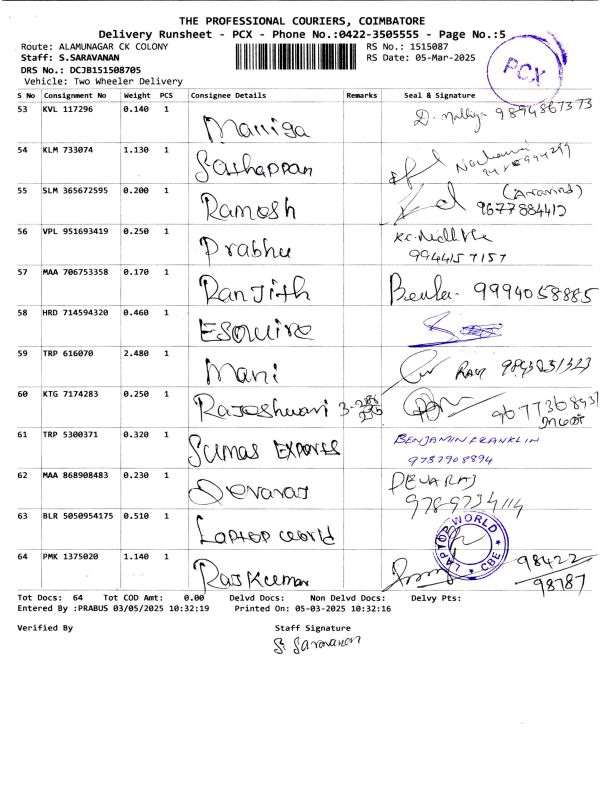 THE PROFESSIONAL COURIERS, COIMBATORE
Delivery Runsheet - PCX - Phone No.:0422-3505555 - Page No.:5
Route: ALAMUNAGAR CK COLONY RS No.: 1515087
Staff: S.SARAVANAN RS Date: 05-Mar-2025
DRS No.: DCJB151508705
Vehicle: Two Wheeler Delivery
PCX
S No Consignment No Weight PCS Consignee Details Remarks Seal & Signature
53 KVL 117296 0.140 1 Malliga
54 KLM 733074 1.130 1 Sathappan
55 SLM 365672595 0.200 1 Ramesh (Aravind)
9677884412
56 VPL 951693419 0.250 1 Prabhu
9944157157
57 MAA 706753358 0.170 1 Ranjith Beula. 9994058885
58 HRD 714594320 0.460 1 Esquire
59 TRP 616070 2.480 1 Mani
60 KTG 7174283 0.250 1 Rajeshwari
61 TRP 5300371 0.320 1 Sumas Exports BENJAMIN FRANKLIN
9787908894
62 MAA 868908483 0.230 1 Devaraj DEVARAJ
63 BLR 5050954175 0.510 1 Laptop world LAPTOP WORLD CBE
64 PMK 1375020 1.140 1 Rajkumar 98422
98787
Tot Docs: 64 Tot COD Amt: 0.00 Delvd Docs: Non Delvd Docs: Delvy Pts:
Entered By :PRABUS 03/05/2025 10:32:19 Printed On: 05-03-2025 10:32:16
Verified By Staff Signature
S. Saravanan